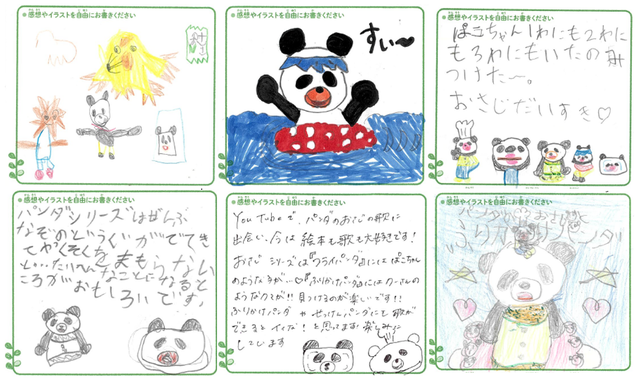 ●感想やイラストを自由にお書きください
●感想やイラストを自由にお書きください
すい〜
●感想やイラストを自由にお書きください
ぱこちゃん1わにも2わに
も3わにもいたのみ
つけた〜。
おさじだいすき♡
●感想やイラストを自由にお書きください
パンダシリーズはぜんぶ
なぞのどうぐがでてき
てやくそくをまもらない
と…たいへんなことになると
ころがおもしろいです。
●感想やイラストを自由にお書きください
You Tubeで、パンダのおさじの歌に
出会い、今は絵本も歌も大好きです!
おさじシリーズは『フライパンダ』にはぱこちゃん
のようなクマが…♡『ふりかけパンダ』にはクーさんの
ようなクマが!!見つけるのが楽しいです!!
ふりかけパンダやせっけんパンダにも歌が
できるとイイな!と思ってます!楽しみに
しています
●感想やイラストを自由にお書きください
パンダのおさじと
ふりかけパンダ